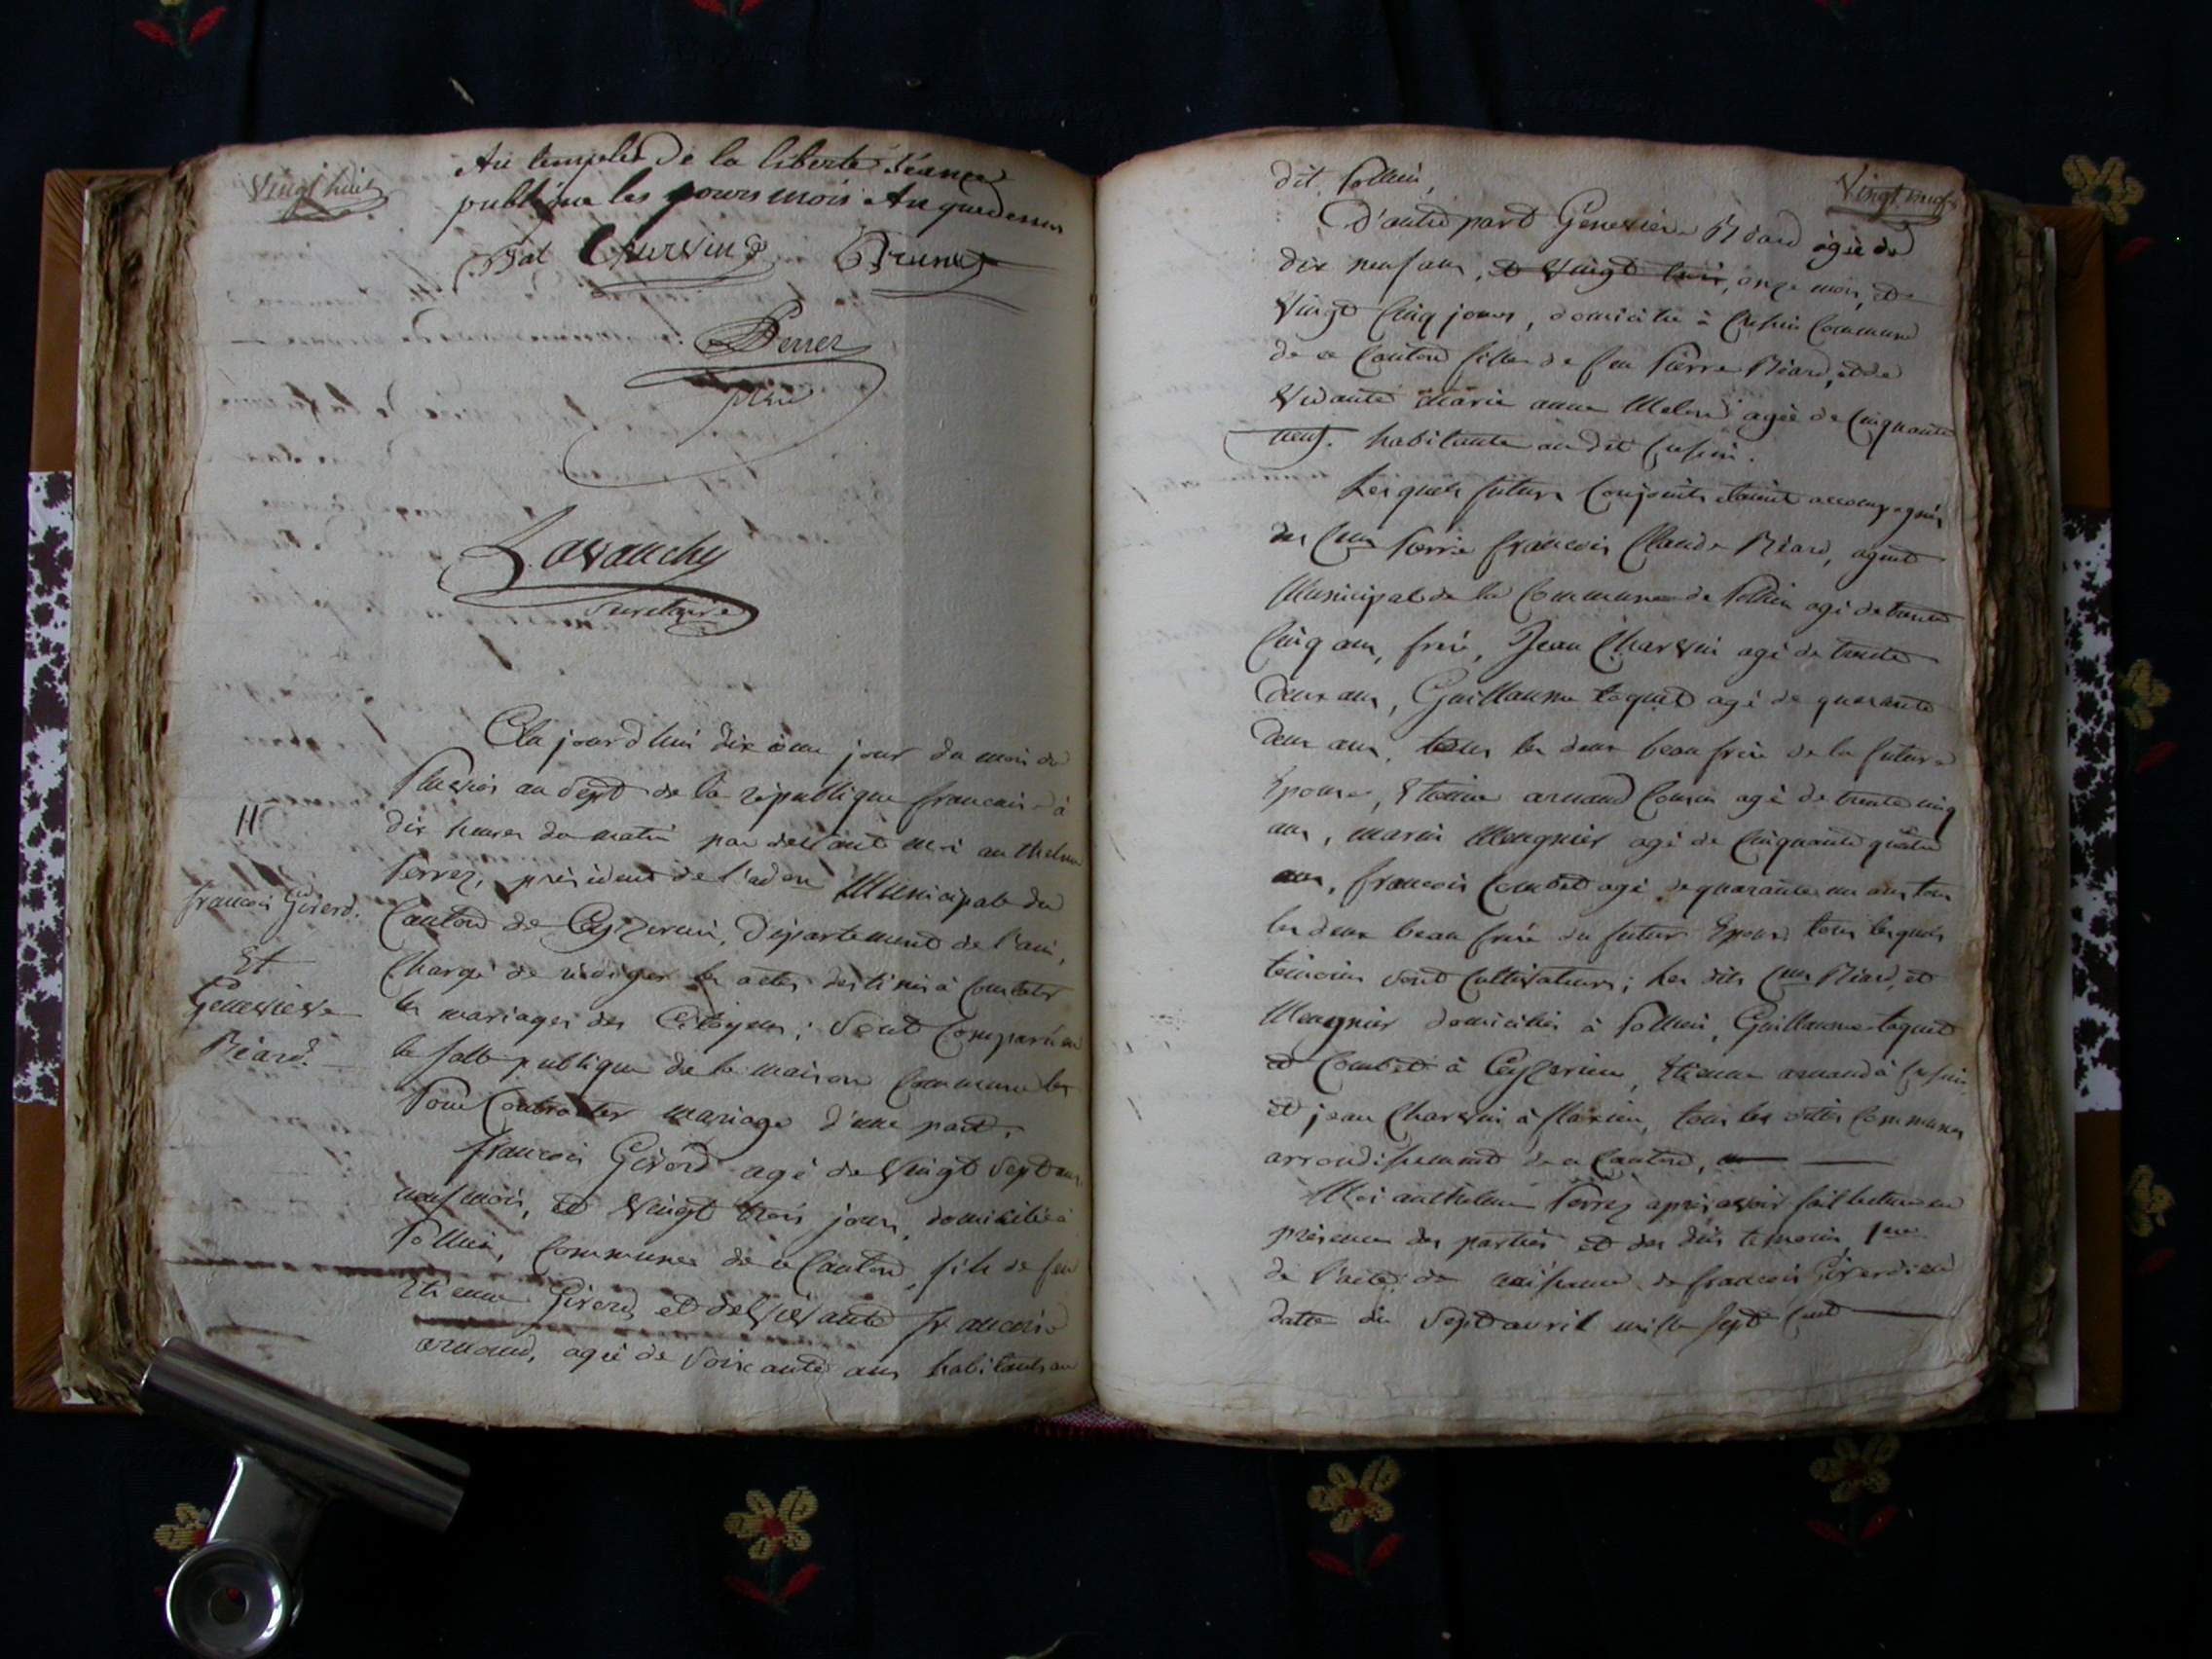 Vingt huit
Au temple de la liberté Séance
publique les jours mois An que dessus
Charvin
Perrez
Lavanchy
Secretaire
11
francois Girerd.
Et
Genevieve
Réard.
Cejourd'hui dixieme jour du mois de
Pluviose an Sept de la republique francaise à
dix heures du matin par devant moi anthelme
Perrez, président de l'adon Municipale du
Canton de Ceyzeriat, Département de l'ain,
Chargé de rediger les actes destinés à Constater
les mariages des Citoyens; Sont Comparus en
la salle publique de la maison Commune
Pour Contracter mariage d'une part,
francois Girerd agé de Vingt Sept ans
neuf mois, et Vingt trois jours, domicilié à
Commune de ce Canton, fils de feu
Etienne Girerd, et de Vivante francoise
arnaud, agée de Soixante ans habitante au
Vingt neuf
dit
D'autre part Genevieve Réard agée de
dix neuf ans, et Vingt trois, onze mois, et
Vingt Cinq jours, domiciliée à Commune
de ce Canton fille de feu Pierre Réard, et de
Vivante Marie anne agée de Cinquante
neuf. habitante au dit
Lesquels futurs Conjoints etaient accompagnés
des Cens Pierre francois Claude Réard, agent
Municipal de la Commune de agé de trente
Cinq ans, frere, Jean Charvin agé de trente
deux ans, Guillaume taquet agé de quarante
deux ans, tous les deux beau frere de la future
Epouse, Etienne arnaud Cousin agé de trente cinq
ans, marin Mengnier agé de Cinquante quatre
ans, francois Combet agé de quarante un ans tous
les deux beau frere du futur Epoux tous lesquels
temoins sont Cultivateurs; Les dits Cens Réard, et
Mengnier domiciliés à Guillaume taquet
et Combet à Ceyzeriat, Etienne arnaud à
et jean Charvin à tous les dites Communes
arrondissement de ce Canton,
Moi anthelme Perrez après avoir fait lecture en
présence des parties et des dits temoins, 1mo
de l'acte de naissance de francois Girerd en
datte du Sept avril mille Sept Cent